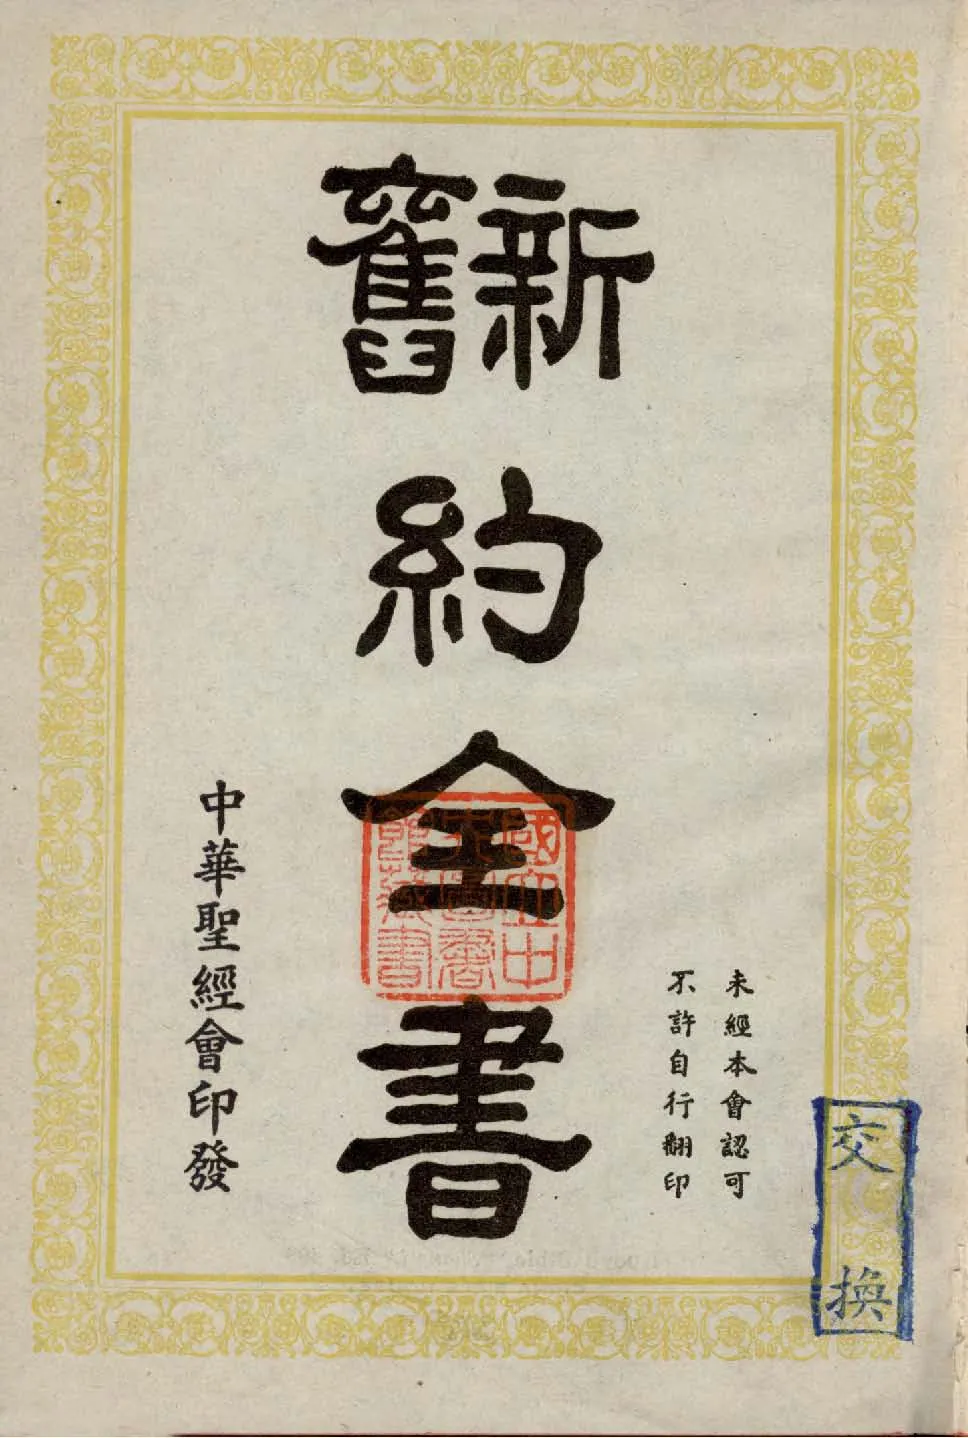 新舊
約
全
書
未經本會認可
不許自行翻印
中華聖經會印發
國立中
央圖書
館藏書
交換